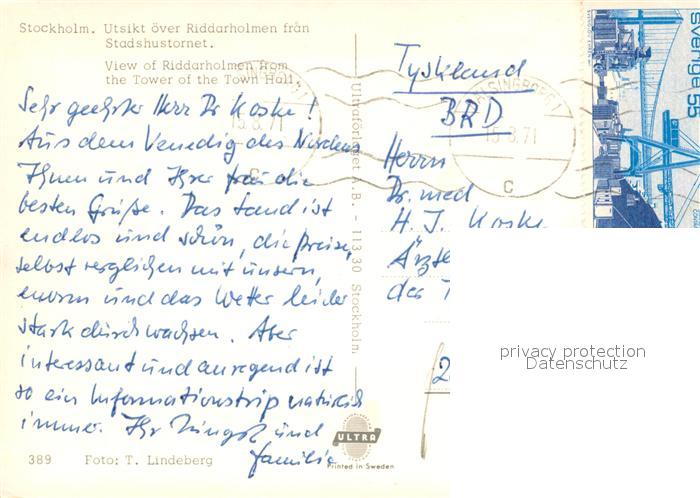 Stockholm. Utsikt över Riddarholmen från
Stadshustornet.
View of Riddarholmen from
the Tower of the Town Hall.
Sehr geehrter Herr Dr Koske!
Aus dem Venedig des Nordens
Ihnen und Ihrer Frau die
besten Grüße. Das Land ist
endlos und schön, die Preise,
selbst verglichen mit unsern,
enorm und das Wetter leider
stark durchwachsen. Aber
interessant und anregend ist
so ein Informationstrip natürlich
immer. Ihr und
Familie
389 Foto: T. Lindeberg
Ultraförlaget A.B. - 113 30 Stockholm.
ULTRA
Printed in Sweden
Tyskland
BRD
Herrn
Dr. med
H. J. Koske
Ärzte
der
HELSINGBORG 1
15.8.71
C
15.8.71
Sverige 55
privacy protection
Datenschutz